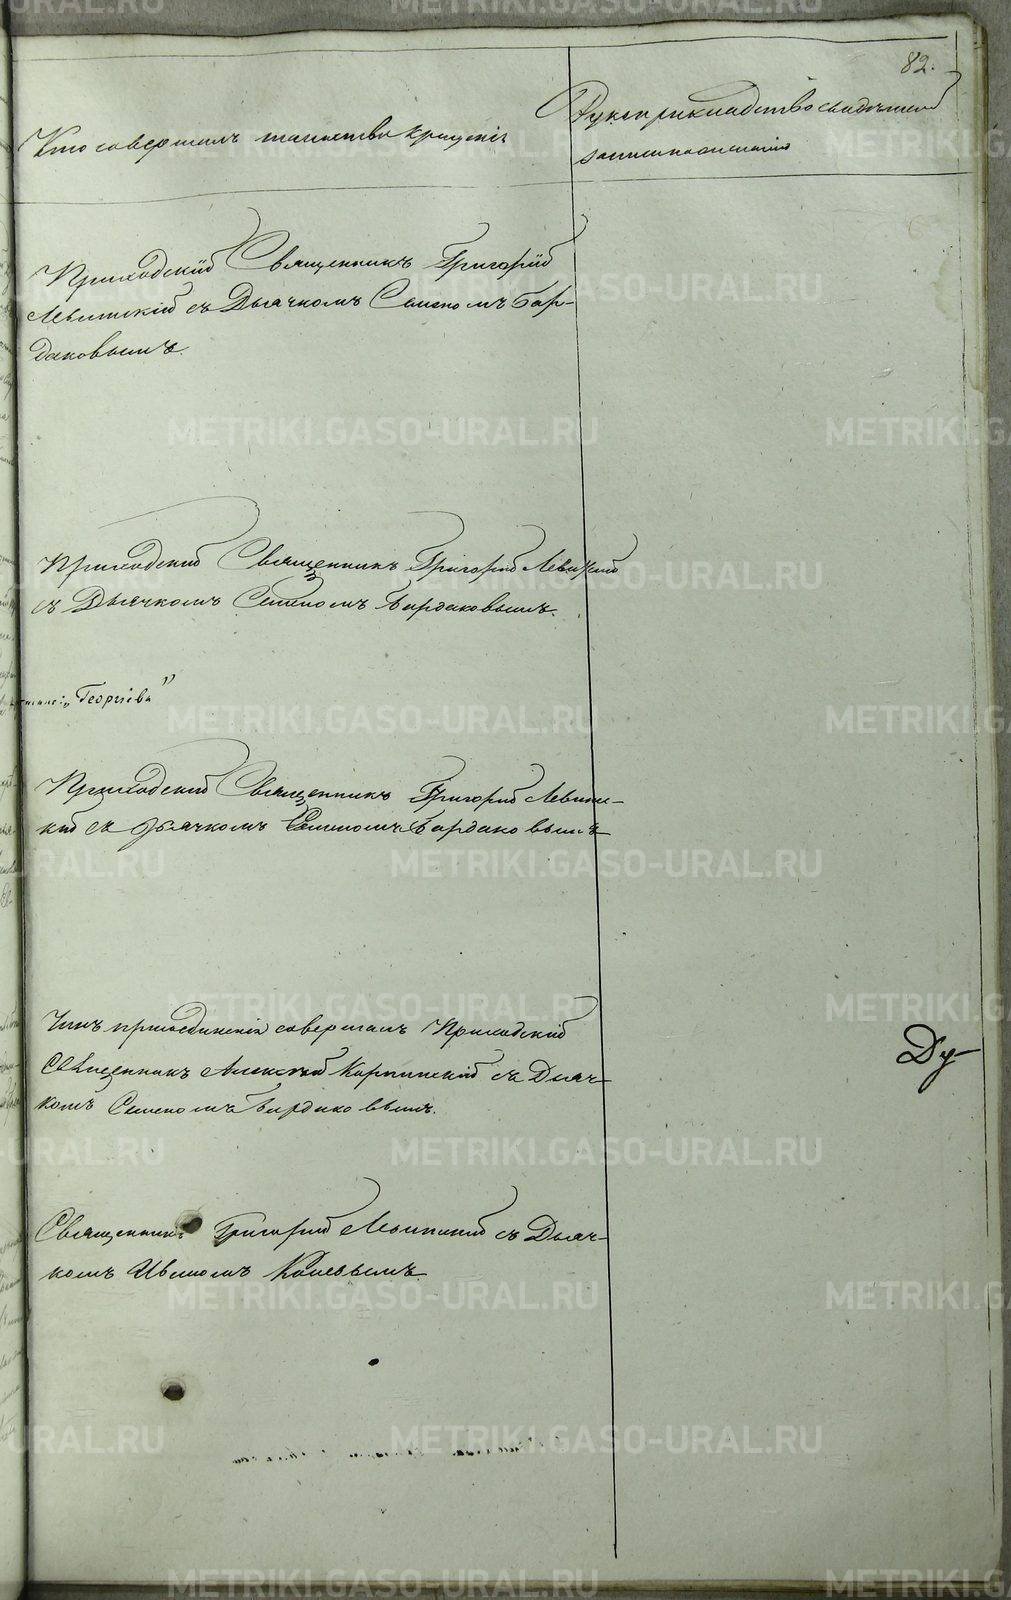 82.
Кто совершалъ таинство крещенія
Рукоприкладство свидѣтелей
записи по желанію
Приходскій Священникъ Григорій
Левитскій съ Дьячкомъ Семеномъ Бар-
даковымъ.
Приходский Священникъ Григорій Левитскій
съ Дьячкомъ Семеномъ Бардаковымъ.
„Георгіева"
Приходский Священникъ Григорій Левит-
кій съ Дьячкомъ Семеномъ Бардаковымъ
Чинъ присоединенія совершалъ Приходскій
Священникъ Алексѣй Карпинскій съ Дьяч-
комъ Семеномъ Бардаковымъ.
Ду-
Священникъ Григорій Левитскій съ Дьяч-
комъ Ивано​мъ
METRIKI.GASO-URAL.RU